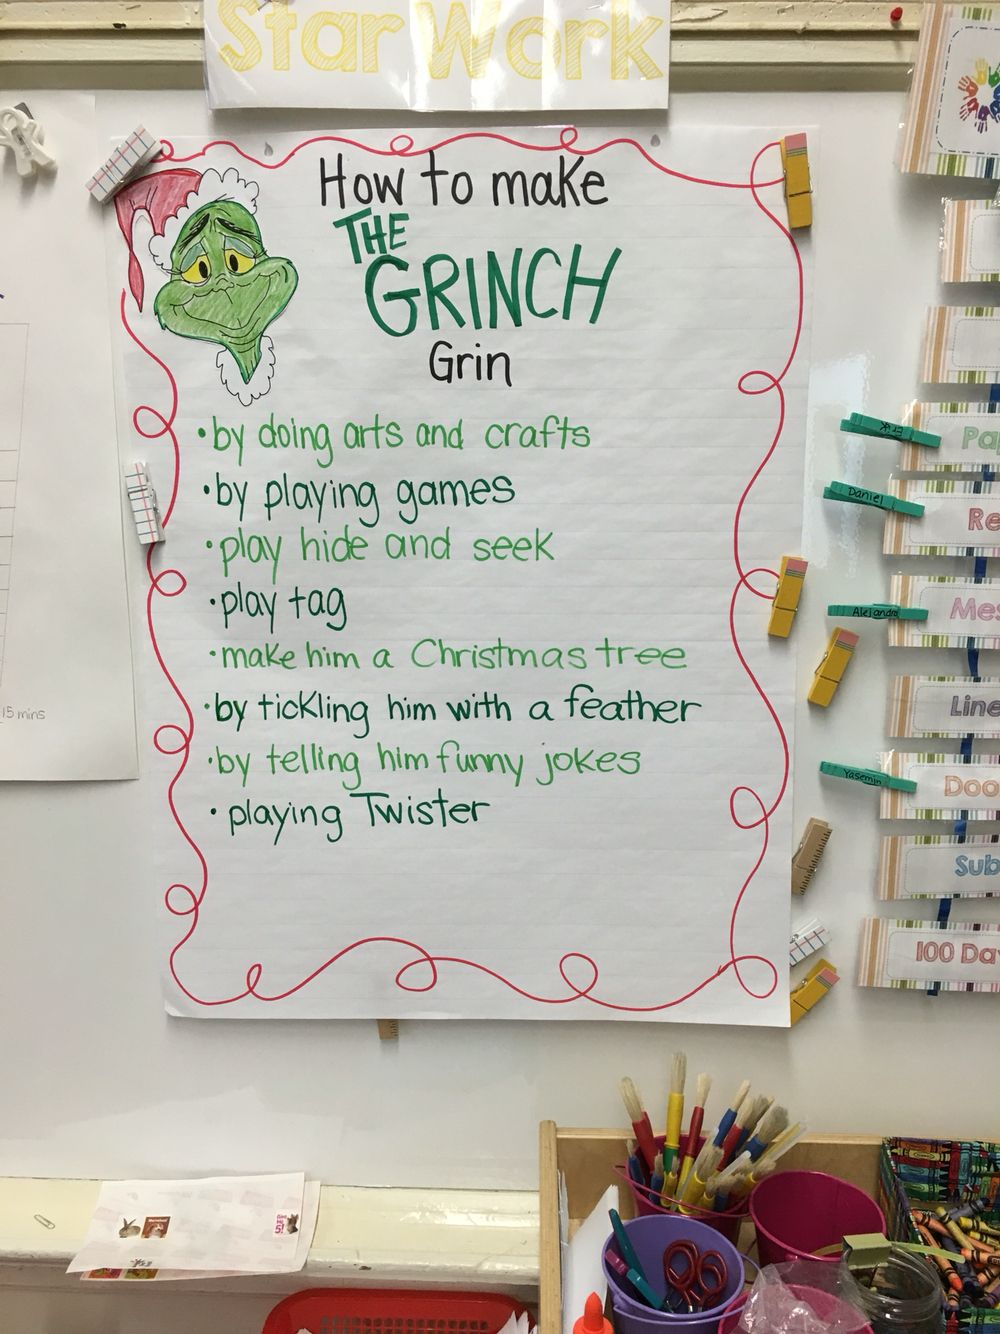 Star Work
How to make
THE
GRINCH
Grin
•by doing arts and crafts
•by playing games
•play hide and seek
•play tag
•make him a Christmas tree
•by tickling him with a feather
•by telling him funny jokes
•playing Twister
15 mins
Daniel
Alejandro
Yasemin
Line
100 Da